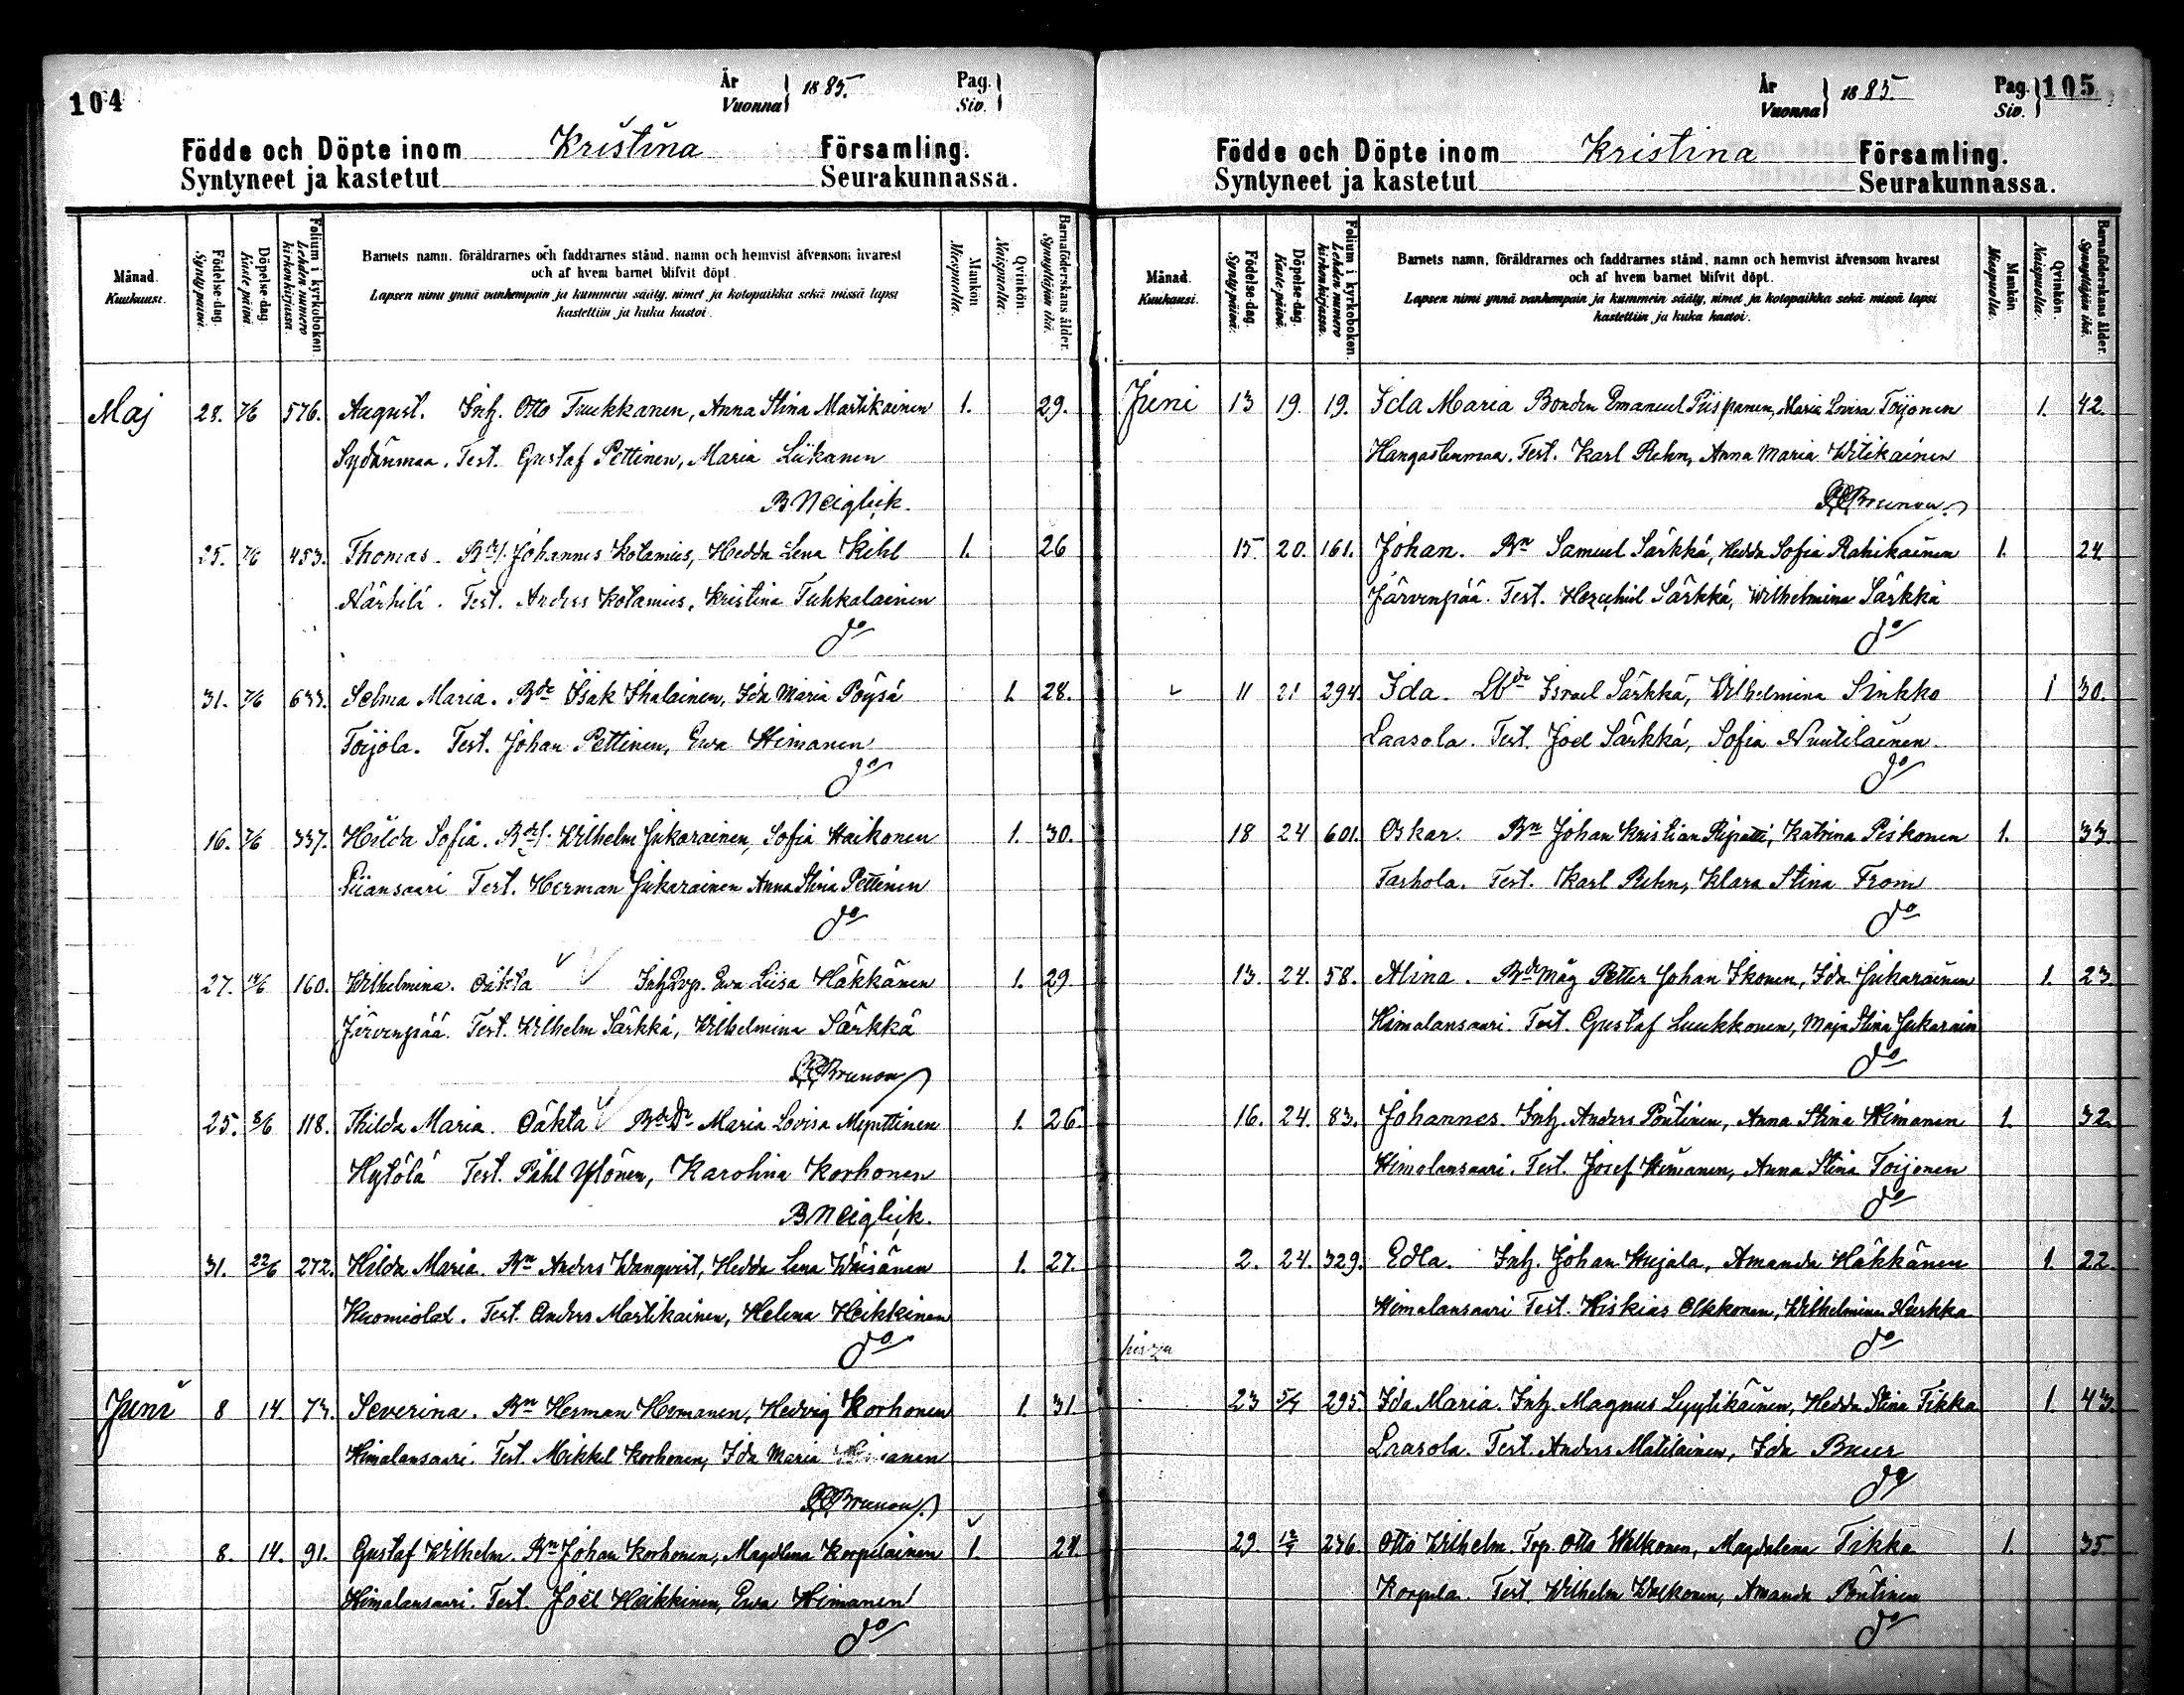 104
År
Vuonna
1885.
Pag.
Siv.
Födde och Döpte inom Kristina Församling.
Syntyneet ja kastetut Seurakunnassa.
Månad.
Kuukausi.
Födelse-dag.
Synty päivä.
Döpelse-dag.
Kaste päivä.
Folium i kyrkoboken.
Lehden numero kirkonkirjassa.
Barnets namn, föräldrarnes och faddrarnes stånd, namn och hemvist äfvensom hvarest
och af hvem barnet blifvit döpt.
Lapsen nimi ynnä vanhempain ja kummein sääty, nimet ja kotopaikka sekä missä lapsi
kastettiin ja kuka kastoi.
Mankön.
Miespuolta.
Qvinkön.
Naispuolta.
Barnaföderskans ålder.
Synnyttäjän ikä.
Maj 28. 7/6 576. August. Inh. Otto Tuukkanen, Anna Stina Martikainen 1. 29.
Sydänmaa. Test. Gustaf Pettinen, Maria Liikanen
B Neiglick.
25. 7/6 453. Thomas. Johannes Kotamies, Hedda Lena Kihl 1. 26
Närhilä. Test. Anders Kotamies, Kristina Tuhkalainen
do
31. 7/6 633. Selma Maria. Bde Isak Ihalainen, Ida Maria Pöysä 1. 28.
Toijola. Test. Johan Pettinen, Ewa Himanen
do
16. 7/6 337. Hilda Sofia. Wilhelm Jukarainen, Sofia Haikonen 1. 30.
Siiansaari Test. Herman Jukarainen Anna Stina Pettinen
do
27. 14/6 160. Wilhelmina. Oäkta Ewa Liisa Häkkänen 1. 29.
Järvenpää. Test. Wilhelm Särkkä, Wilhelmina Särkkä
Brunou
25. 8/6 118. Hilda Maria. Oäkta Maria Lovisa Mynttinen 1. 26.
Hytölä Test. Påhl Ylönen, Karolina Korhonen
B Neiglick.
31. 22/6 272. Hilda Maria. Bn Anders Wanqvist, Hedda Lena Wäisänen 1. 27.
Kuomiolax. Test. Anders Martikainen, Helena Heikkinen
do
Juni 8 14 73. Severina. Bn Herman Hemanen, Hedvig Korhonen 1. 31.
Himalansaari. Test. Mikkel Korhonen, Ida Maria
Brunou
8. 14. 91. Gustaf Wilhelm. Bn Johan Korhonen, Magdlena Korpelainen 1. 24.
Himalansaari. Test. Joel Heikkinen, Ewa Himanen
do
År
Vuonna
1885.
Pag.
Siv.
105
Födde och Döpte inom Kristina Församling.
Syntyneet ja kastetut Seurakunnassa.
Månad.
Kuukausi.
Födelse-dag.
Synty päivä.
Döpelse-dag.
Kaste päivä.
Folium i kyrkoboken.
Lehden numero kirkonkirjassa.
Barnets namn, föräldrarnes och faddrarnes stånd, namn och hemvist äfvensom hvarest
och af hvem barnet blifvit döpt.
Lapsen nimi ynnä vanhempain ja kummein sääty, nimet ja kotopaikka sekä missä lapsi
kastettiin ja kuka kastoi.
Mankön.
Miespuolta.
Qvinkön.
Naispuolta.
Barnaföderskans ålder.
Synnyttäjän ikä.
Juni 13 19. 19. Ida Maria Bonden Emanuel Piispanen, Maria Lovisa Toijonen 1. 42.
Hangastenmaa. Test. Karl Rehn, Anna Maria Witikainen
Brunou
15 20. 161. Johan. Bn Samuel Särkkä, Hedda Sofia Rahikainen 1. 24.
Järvenpää. Test. Hezechiel Särkkä, Wilhelmina Särkkä
do
11 21 294. Ida. Israel Särkkä, Wilhelmina Sinkko 1 30.
Laasola. Test. Joel Särkkä, Sofia Nuutilainen.
do
18 24 601. Oskar. Bn Johan Kristian Ripatti, Katrina Peskonen 1. 33.
Tarhola. Test. Karl Rehn, Klara Stina From
do
13. 24. 58. Alina. Bde Måg Petter Johan Ikonen, Ida Jukarainen 1. 23.
Himalansaari. Test. Gustaf Luukkonen, Maja Stina Jukarain
do
16. 24. 83. Johannes. Inh. Anders Pöntinen, Anna Stina Himanen 1. 32.
Himalansaari. Test. Josef Himanen, Anna Stina Toijonen
do
2. 24. 329. Edla. Inh. Johan Hujala, Amanda Häkkänen 1. 22.
Himalansaari Test. Hiskias Olkkonen, Wilhelmina Nurkka
do
23 5/7 295. Ida Maria. Inh. Magnus Lyytikäinen, Hedda Stina Tikka 1. 43.
Laasola. Test. Anders Matilainen, Ida Buur
do
29. 12/7 236. Otto Wilhelm. Trp. Otto Walkonen, Magdalena Tikka 1. 35.
Korpela. Test. Wilhelm Walkonen, Amanda Pöntinen
do